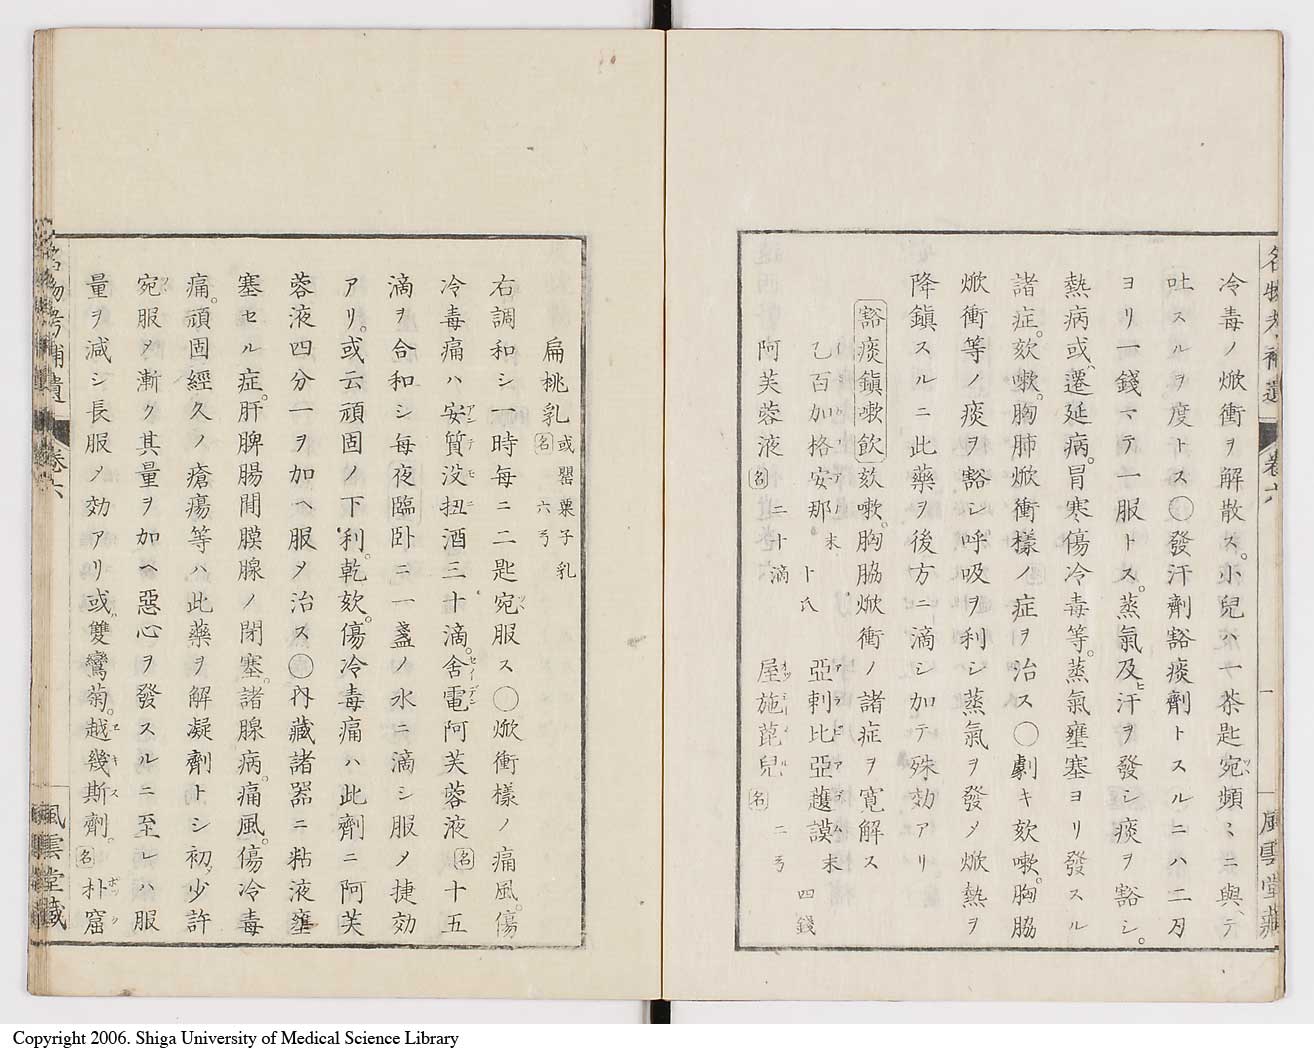 冷毒ノ焮衝ヲ解散ス。小兒ハ一茶匙宛頻ミニ與、テ
吐スルヲ。度トス〇發汗劑豁痰劑トスルニハ二刄
ヨリ一錢マテ一服トス。蒸氣及ヒ汗ヲ發シ痰ヲ豁シ。
熱病或ハ遷延病。冒寒傷冷毒等。蒸氣壅塞ヨリ發スル
諸症。欬嗽。胸肺焮衝樣ノ症ヲ治ス〇劇キ欬嗽。胸脇
焮衝等ノ痰ヲ豁シ呼吸ヲ利シ蒸氣ヲ發メ焮熱ヲ
降鎮スルニ此藥ヲ後方ニ滴シ加テ殊効アリ
豁痰鎮嗽飲 欬嗽。胸脇焮衝ノ諸症ヲ寬解ス
乙百加格安那末 卜氏 亞剌比亞䕒謨末 四錢
阿芙蓉液 名 二十滴 屋施蓖兒 名 二丂
名物考補遺 卷六 一 風雲堂藏
扁桃乳 或罌粟子乳 名 六丂
右調和シ一時每ニ二匙宛服ス〇焮衝樣ノ痛風。傷
冷毒痛ハ安質没扭酒三十滴。舍電阿芙蓉液 名 十五
滴ヲ合和シ每夜臨卧ニ一盞ノ水ニ滴シ服メ捷効
アリ。或云頑固ノ下利。乾欬。傷冷毒痛ハ此劑ニ阿芙
蓉液四分一ヲ加ヘ服メ治ス〇內藏諸器ニ粘液壅
塞セル症。肝脾腸間膜腺ノ閉塞。諸腺病。痛風。傷冷毒
痛。頑固經久ノ瘡瘍等ハ此藥ヲ解凝劑トシ初メ少許
宛服メ漸ク其量ヲ加ヘ惡心ヲ發スルニ至レハ服
量ヲ減シ長服メ効アリ或ハ雙鸞菊。越幾斯劑。名 朴窟
名物考補遺 卷六 風雲堂藏
Copyright 2006. Shiga University of Medical Science Library